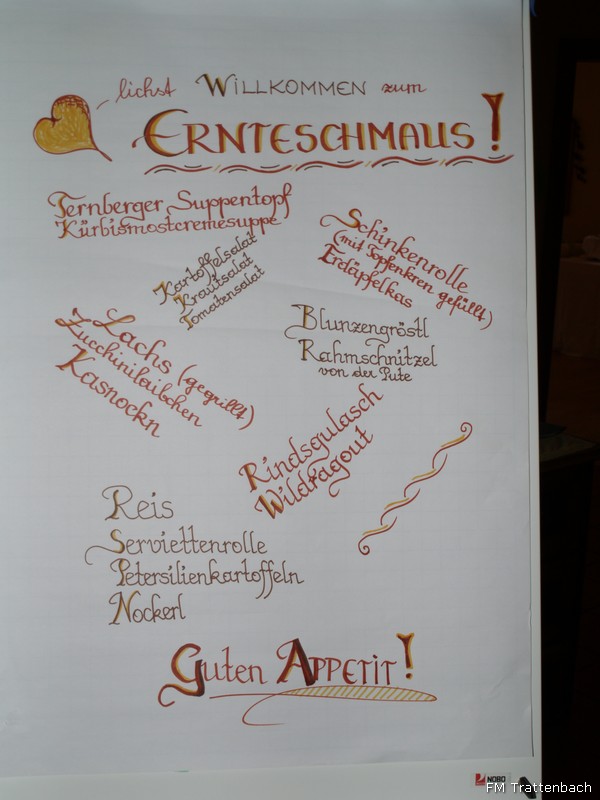 lichst WILLKOMMEN zum
ERNTESCHMAUS!
Ternberger Suppentopf
Kürbismostcremesuppe
Kartoffelsalat
Krautsalat
Tomatensalat
Schinkenrolle
(mit Topfenkren gefüllt)
Erdäpfelkas
Lachs (gegrillt)
Zucchinilaibchen
Kasnockn
Blunzengröstl
Rahmschnitzel
von der Pute
Rindsgulasch
Wildragout
Reis
Serviettenrolle
Petersilienkartoffeln
Nockerl
Guten APPETIT!
NOBO
FM Trattenbach